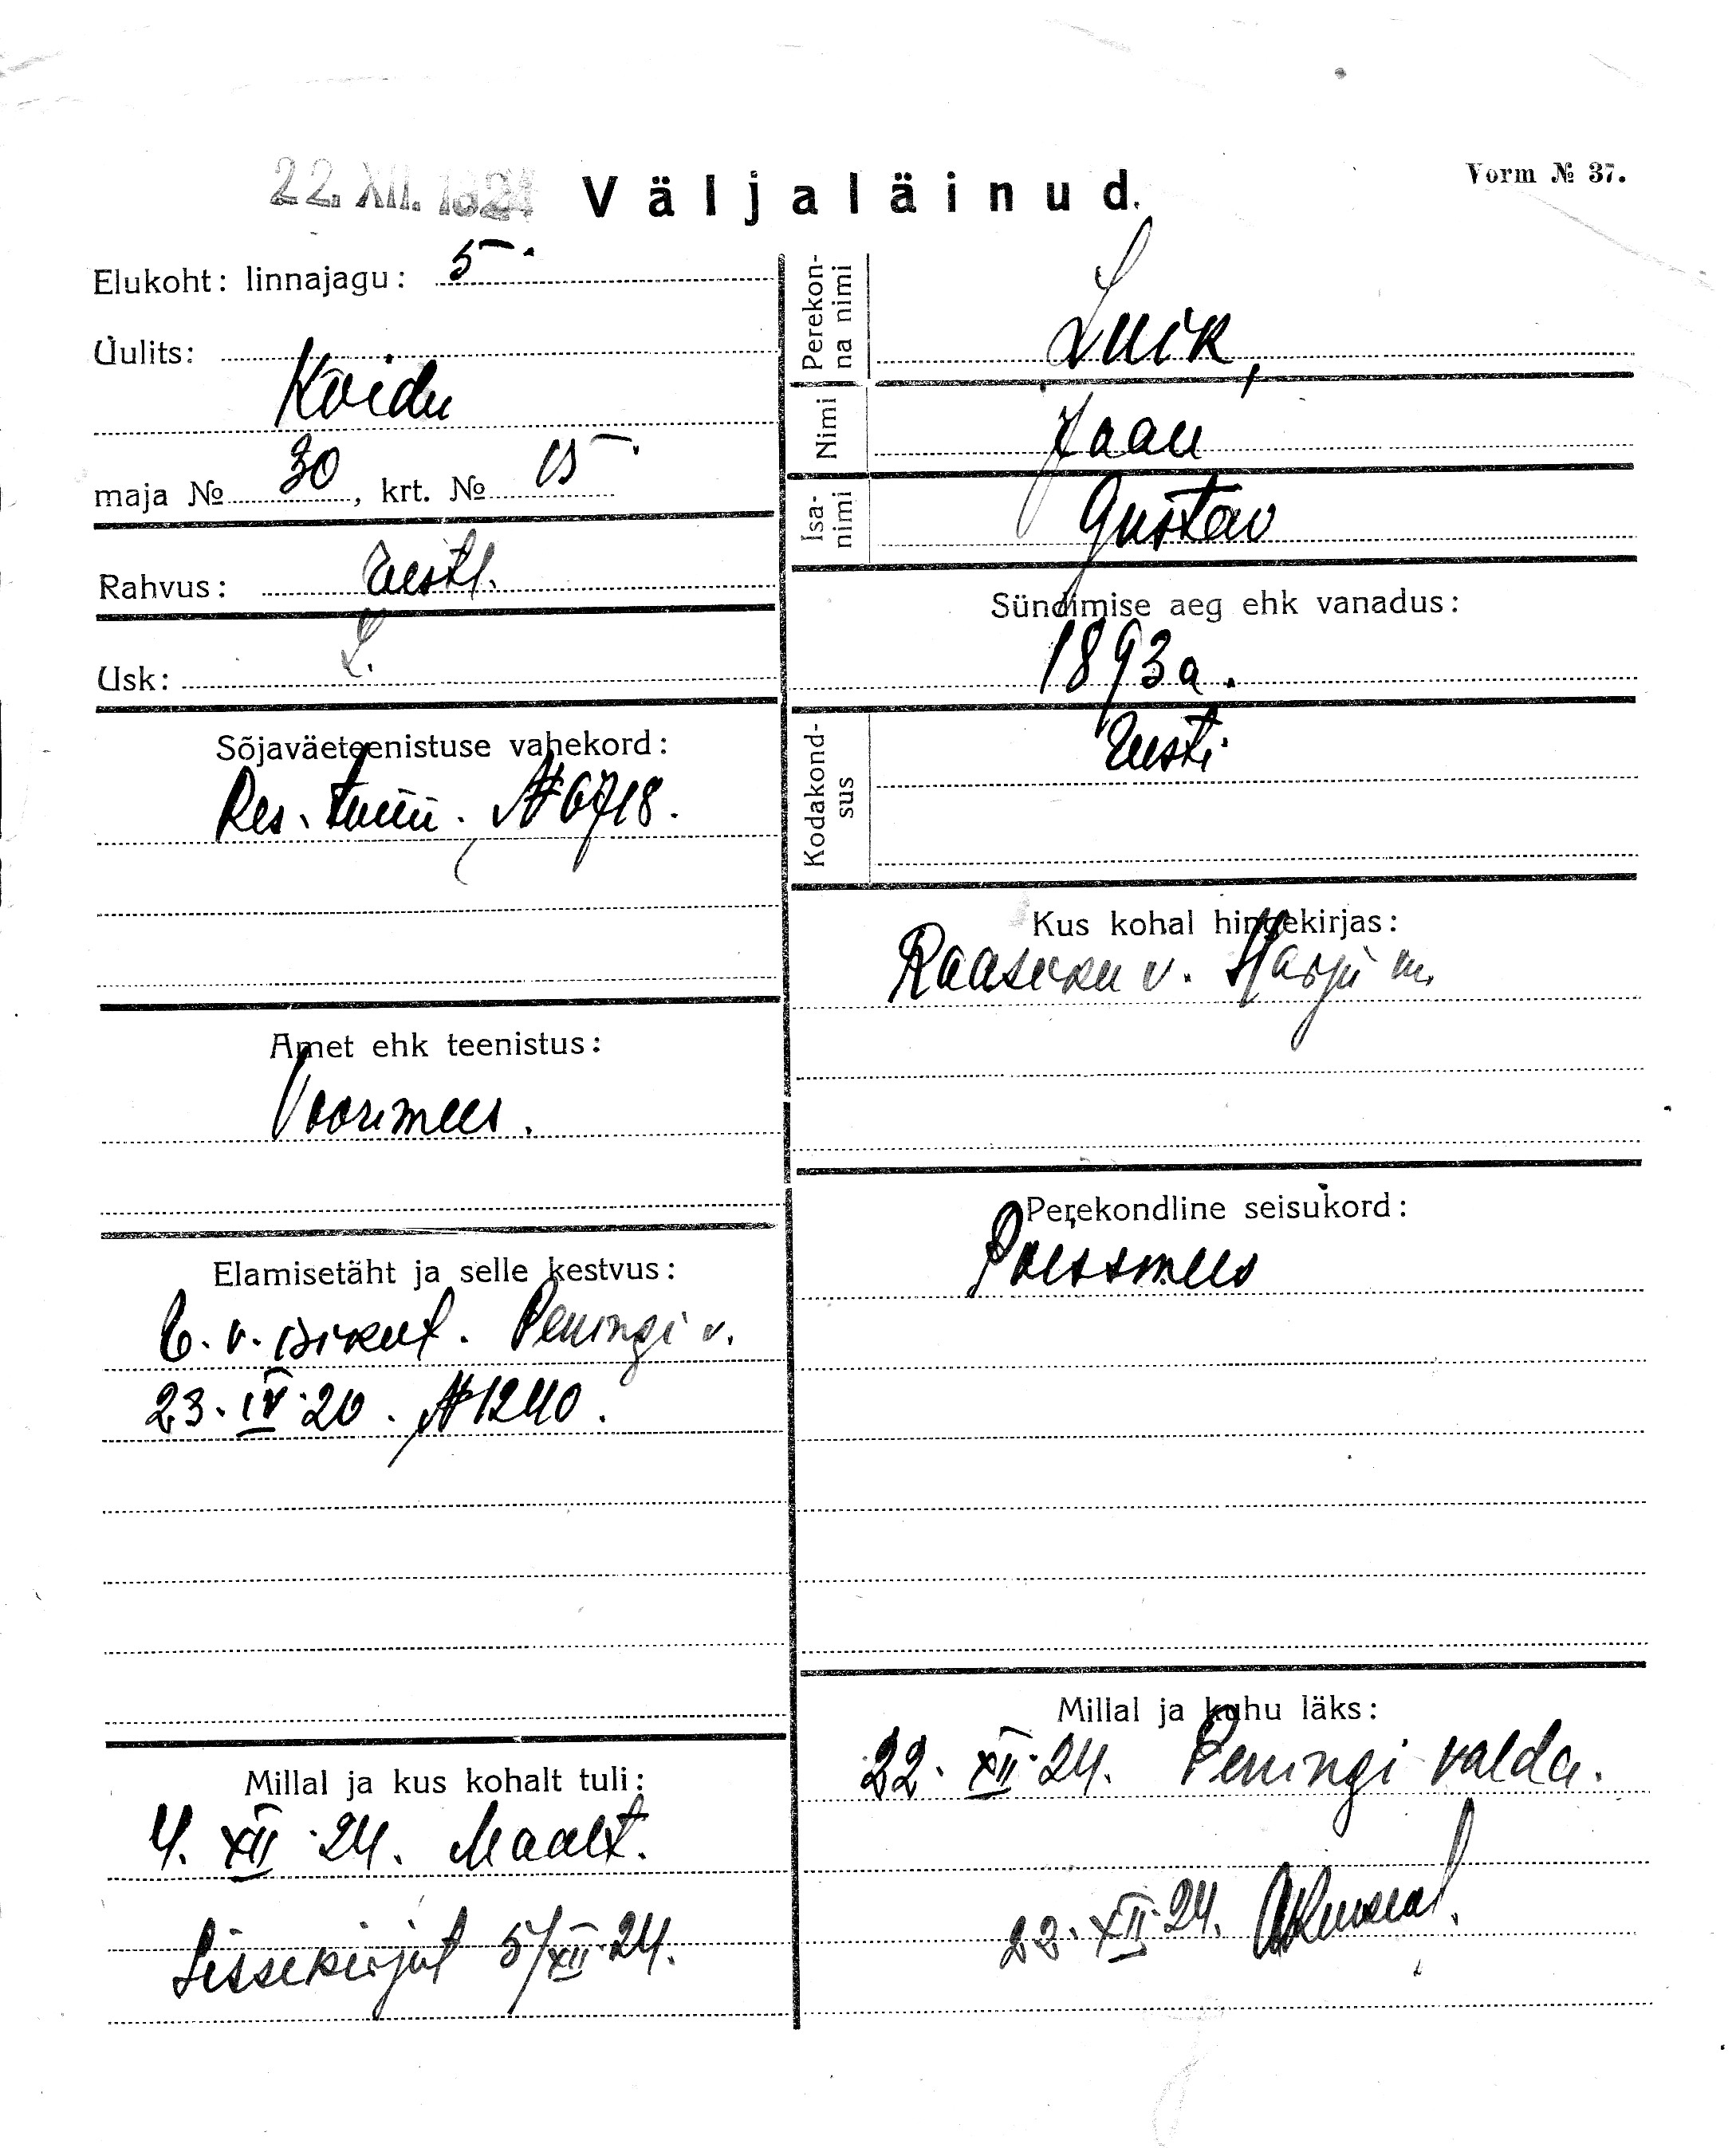 22. XII. 1924 Väljaläinud.
Vorm № 37.
Elukoht: linnajagu: 5.
Uulits:
Koidu
maja № 30, krt. № 15.
Rahvus: Eestl.
Usk: L.
Sõjaväeteenistuse vahekord:
Res. tunn. № 6718.
Amet ehk teenistus:
Voorimees.
Elamisetäht ja selle kestvus:
E. v. isikut. Peningi v.
23. IV. 20. № 1240.
Millal ja kus kohalt tuli:
4. XII. 24. Maalt.
Sissekirjut 5/XII. 24.
Perekonna nimi
Luik,
Nimi
Jaan
Isanimi
Gustav
Sündimise aeg ehk vanadus:
1893 a.
Kodakondsus
Eesti
Kus kohal hingekirjas:
Raasiku v. Harju m.
Perekondline seisukord:
Poissmees
Millal ja kuhu läks:
22. XII. 24. Peningi valda.
22. XII. 24.